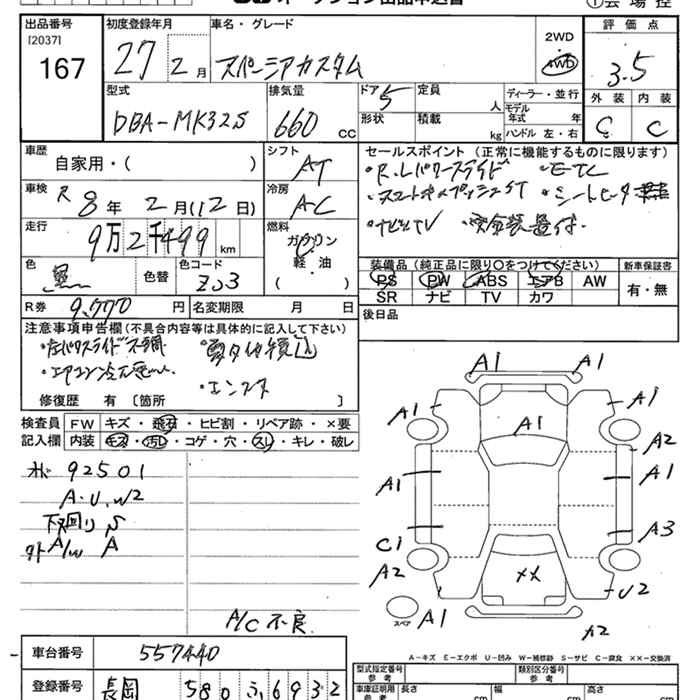 出品番号
[2037]
167
初度登録年月
27 2月
車名・グレード
スペーシアカスタム
2WD
4WD
評価点
3.5
外装 内装
C C
型式
DBA-MK32S
排気量
660 CC
ドア
5
形状
定員
人
積載
kg
ディーラー・並行
モデル年式 年
ハンドル 左・右
車歴
自家用・( )
シフト
AT
車検
R 8年 2月(12日)
冷房
AC
走行
9万2千499 km
燃料
ガソリン
軽・油
( )
色
黒
色替
色コード
ZJ3
R券 9,770円
名変期限 月 日
セールスポイント (正常に機能するものに限ります)
・R.Lパワースライド ・ETC
・シートヒーター
・ナビTV
装備品(純正品に限り○をつけてください)
PS PW ABS エアB AW
SR ナビ TV カワ
新車保証書
有・無
後日品
注意事項申告欄(不具合内容等は具体的に記入して下さい)
・左パワスライド不調
修復歴 有 〔箇所 〕
検査員記入欄
FW キズ・飛石・ヒビ割・リペア跡・×要
内装 キズ・汚し・コゲ・穴・スレ・キレ・破レ
92501
A・U、W2
下回りS
外A/W A
A/C不良
A1 A1
A1 A1 A1
A2
A1 A1
A3
C1
A2
××
U2
スペア
A1
A2
A-キズ E-エクボ U-凹み W-補修跡 S-サビ C-腐食 ××-交換済
車台番号
557440
登録番号
長岡 580 ふ 6932
型式指定番号
参考
類別区分番号
参考
車庫証明用
参考
長さ cm
幅 cm
高さ cm